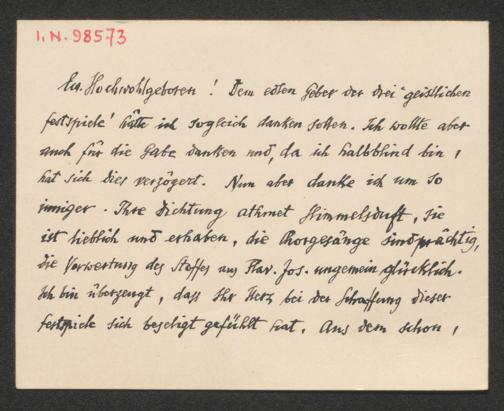 I.N. 98573
Eu. Hochwohlgeboren! Dem edlen Geber der drei "geistlichen
Festspiele' hätte ich sogleich danken sollen. Ich wollte aber
auch für die Gabe danken und, da ich halbblind bin,
hat sich dies verzögert. Nun aber danke ich um so
inniger. Ihre Dichtung athmet Himmelsduft, sie
ist lieblich und erhaben, die Chorgesänge sind prächtig,
die Verwertung des Stoffes aus Flav. Jos. ungemein glücklich.
Ich bin überzeugt, dass Ihr Herz bei der Schaffung dieser
Festspiele sich beseligt gefühlt hat. Aus dem schon,